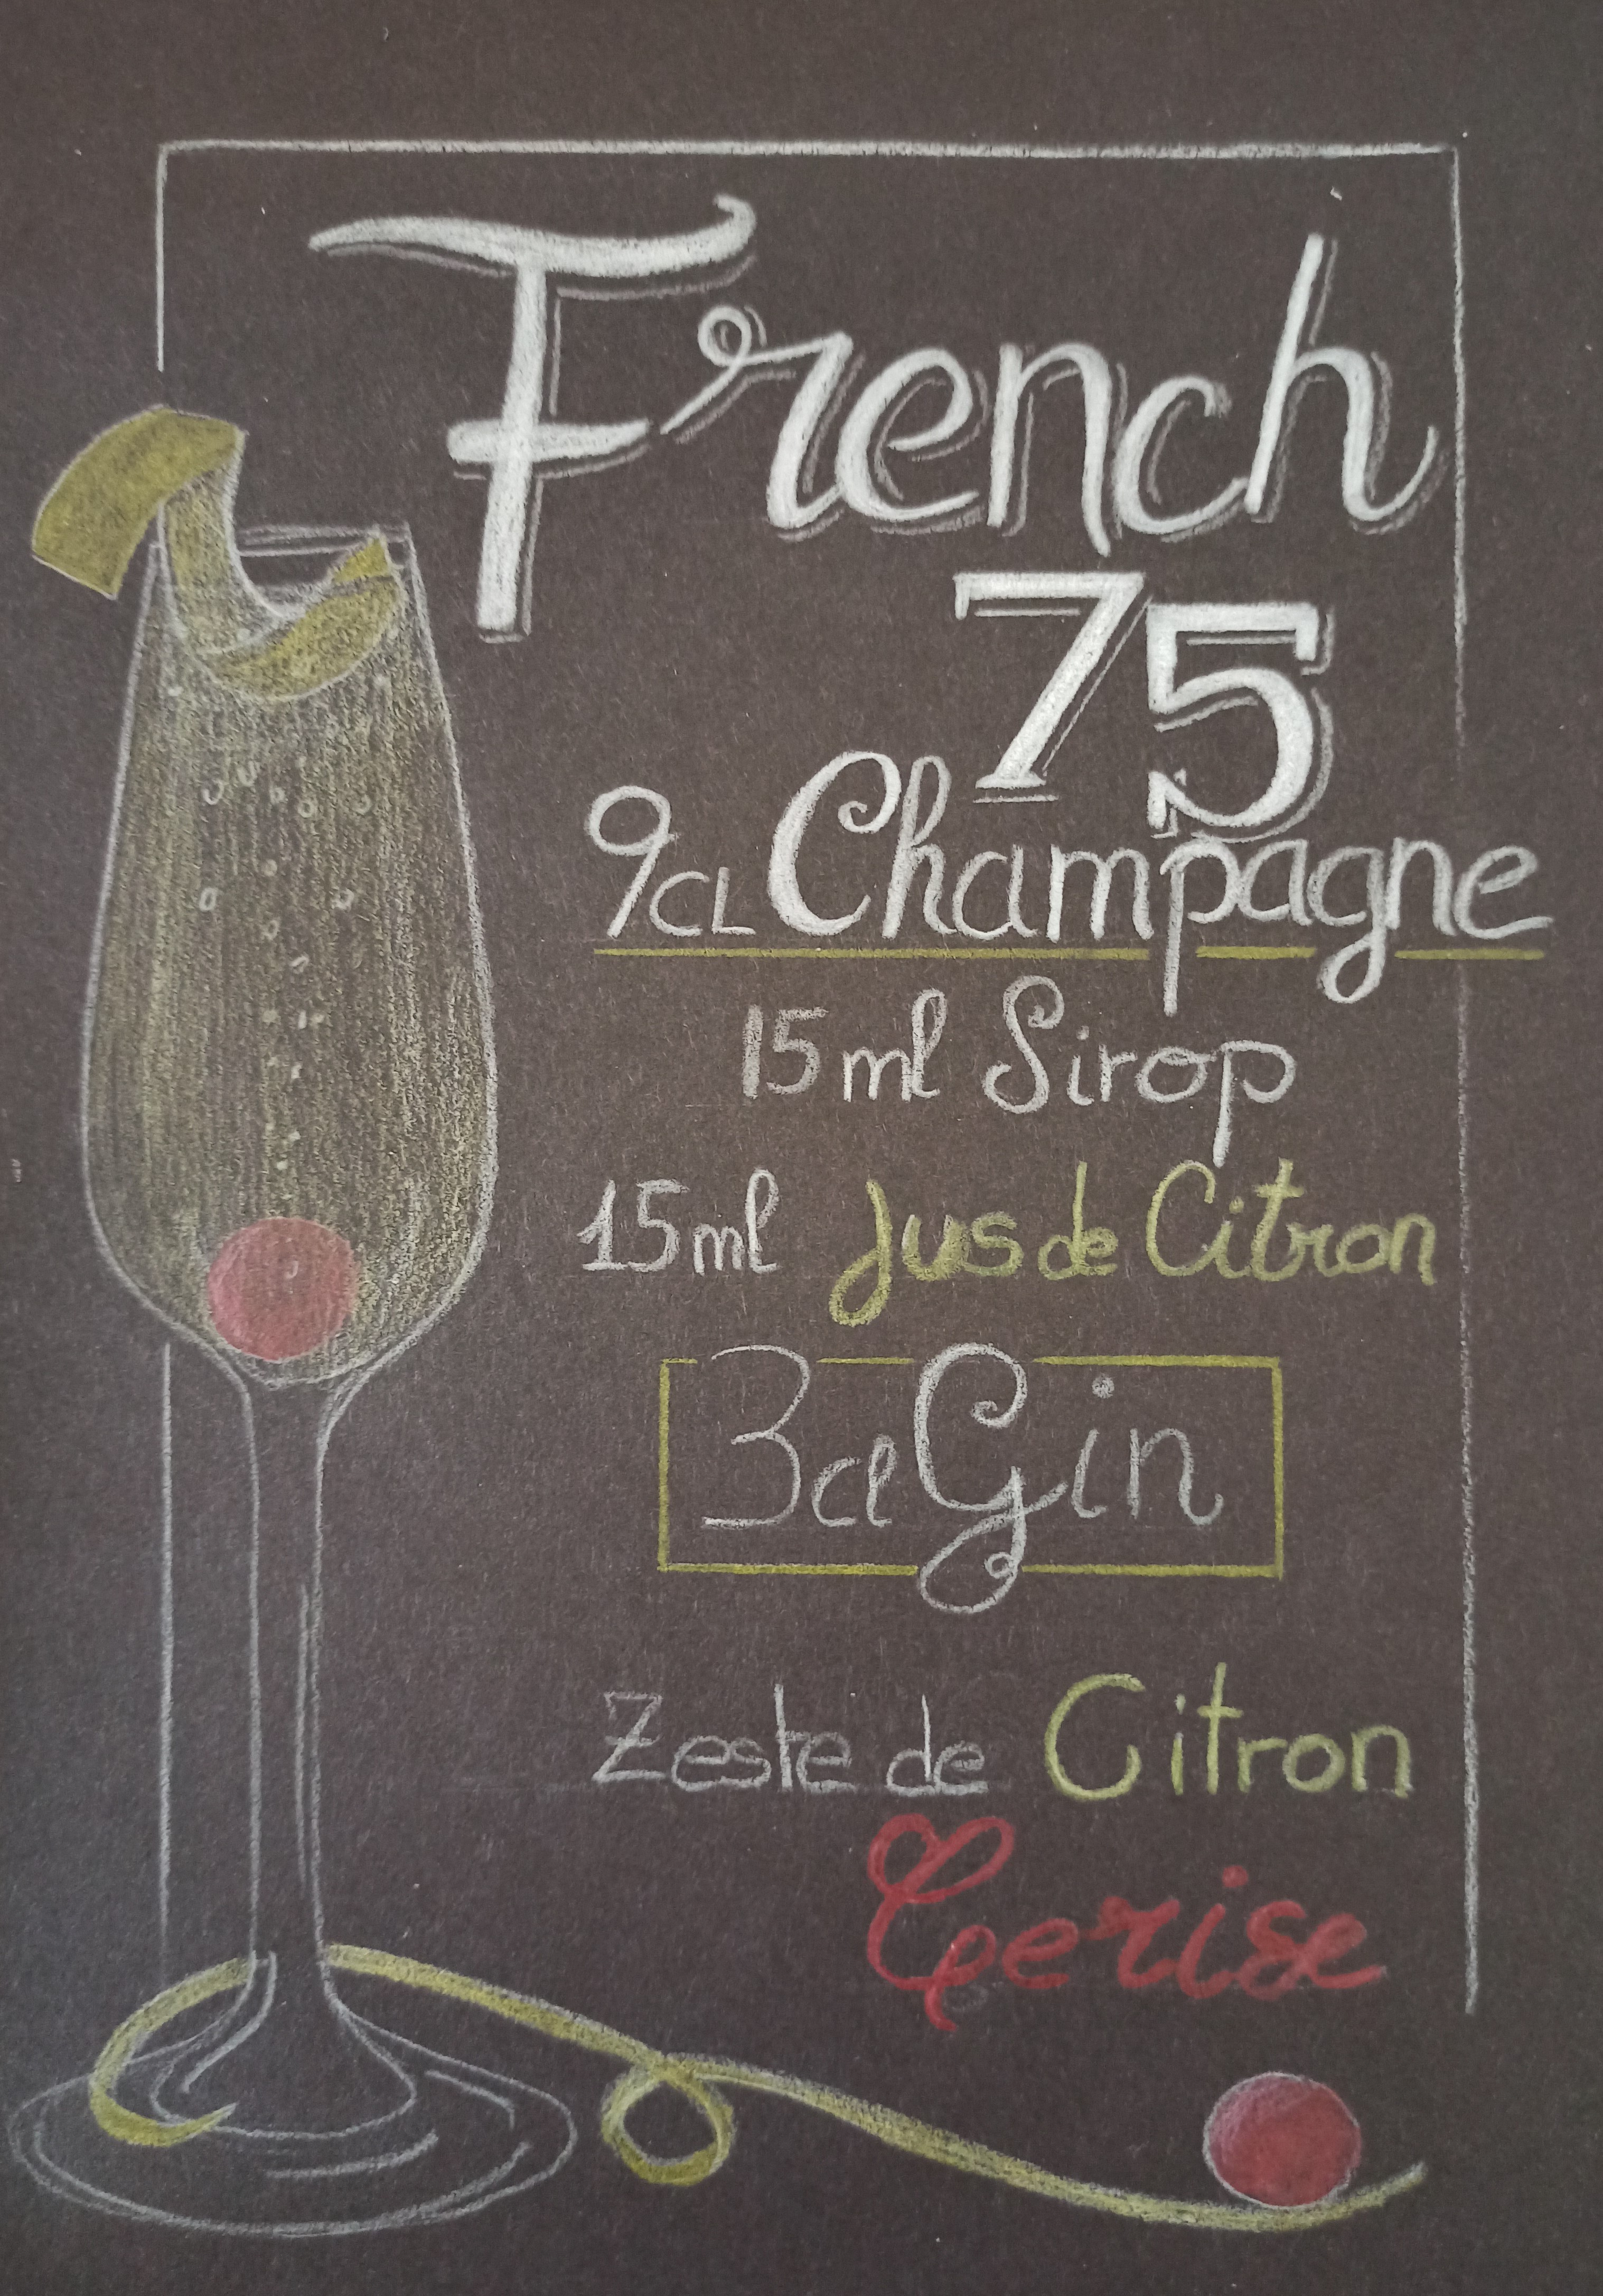 French
75
9CL Champagne
15 ml Sirop
15 ml Jus de Citron
3cl Gin
Zeste de Citron
Cerise